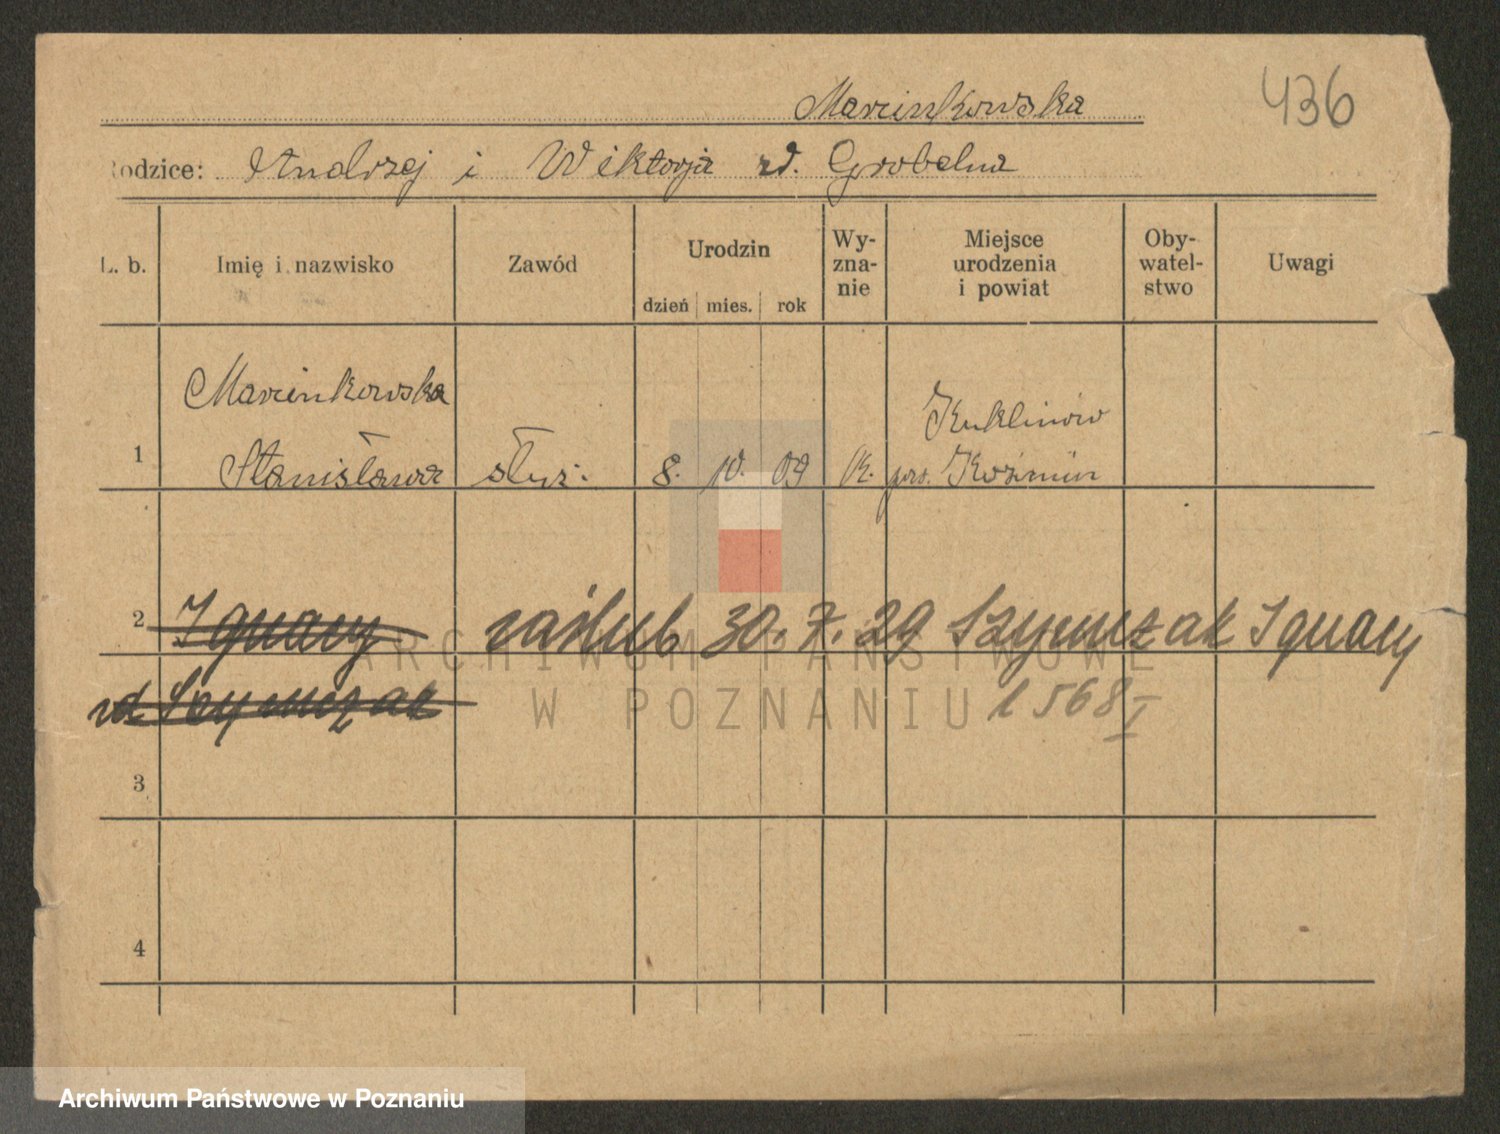 Marcinkowska 436
Rodzice: Andrzej i Wiktorja zd. Grobelna
L. b. Imię i nazwisko Zawód Urodzin dzień mies. rok Wy-zna-nie Miejsce urodzenia i powiat Oby-watel-stwo Uwagi
Marcinkowska Kuklinów
1 Stanisława służ. 8. 10. 09 K. pow. Koźmin
2 Ignacy zaślub 30. 7. 29 Szymczak Ignacy
zd. Szymczak 1568 I
3
4
ARCHIWUM PAŃSTWOWE
W POZNANIU
Archiwum Państwowe w Poznaniu